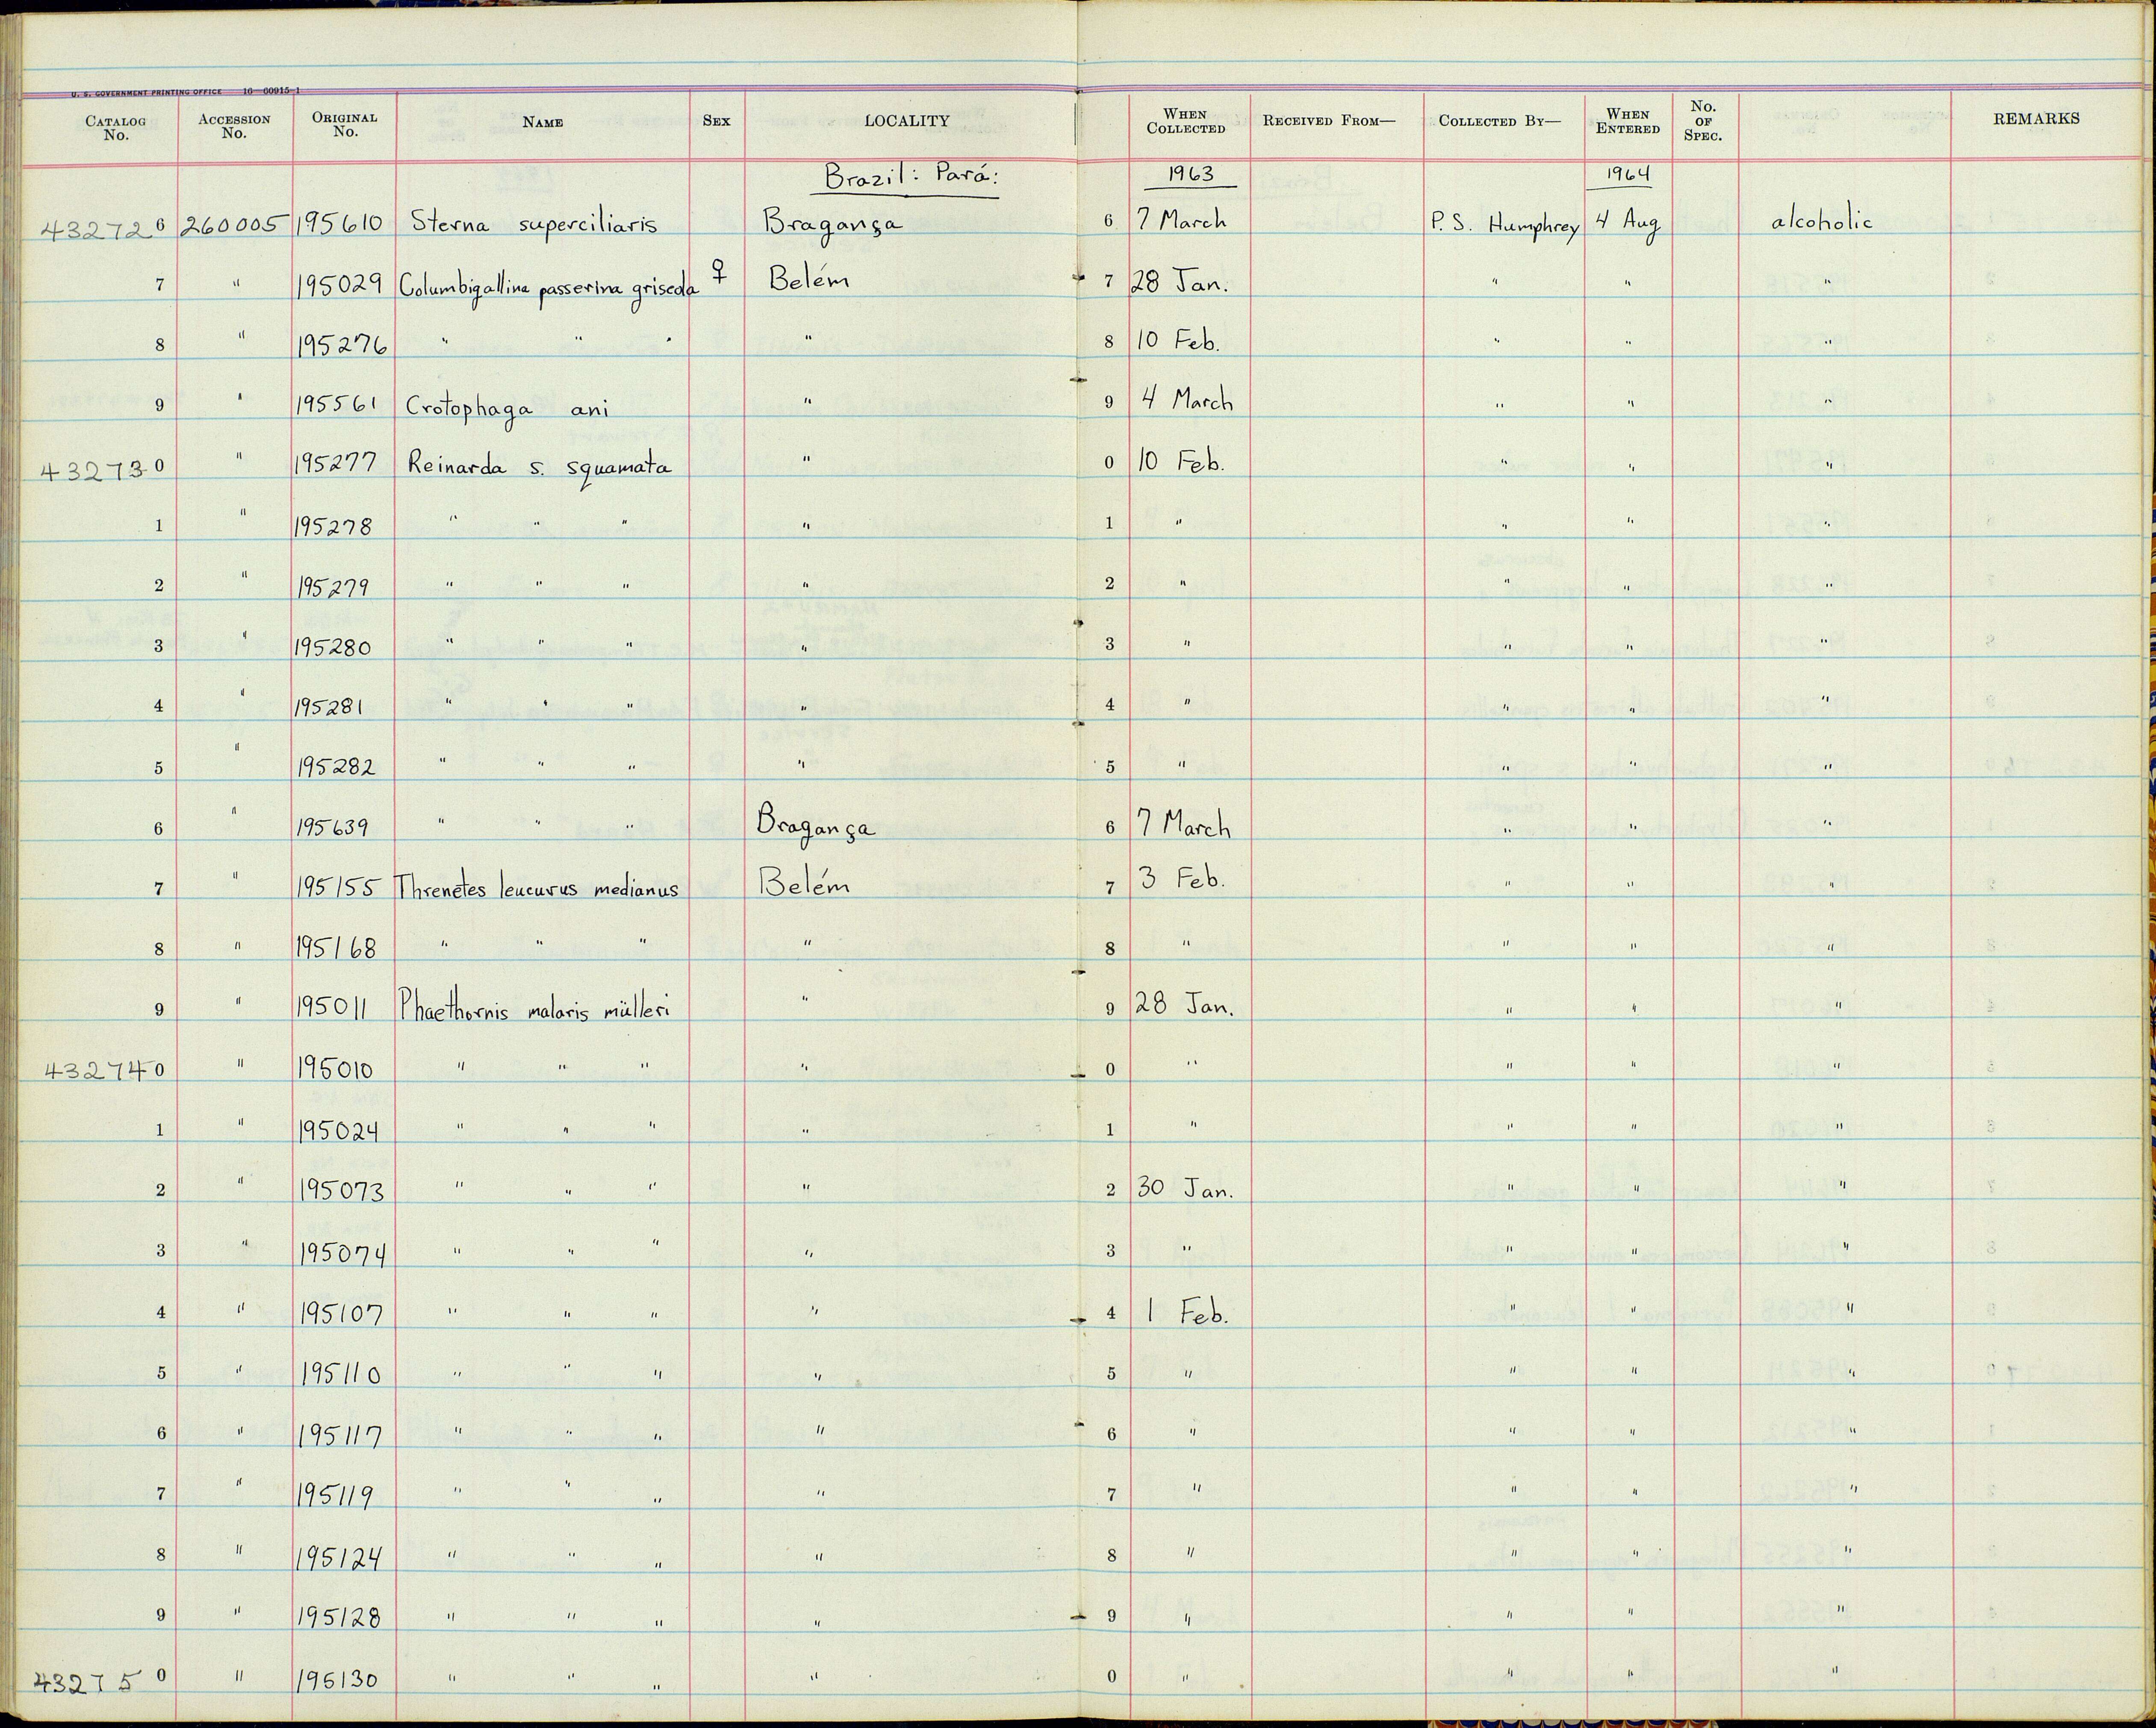 U. S. GOVERNMENT PRINTING OFFICE 16—60915-1
CATALOG No. ACCESSION No. ORIGINAL No. NAME SEX LOCALITY WHEN COLLECTED RECEIVED FROM— COLLECTED BY— WHEN ENTERED No. OF SPEC. REMARKS
Brazil: Pará: 1963 1964
432726 260005 195610 Sterna superciliaris Bragança 6 7 March P. S. Humphrey 4 Aug alcoholic
7 " 195029 Columbigallina passerina griseola ♀ Belém 7 28 Jan. " " "
8 " 195276 " " " " 8 10 Feb. " " "
9 " 195561 Crotophaga ani " 9 4 March " " "
432730 " 195277 Reinarda s. squamata " 0 10 Feb. " " "
1 " 195278 " " " " 1 " " " "
2 " 195279 " " " " 2 " " " "
3 " 195280 " " " " 3 " " " "
4 " 195281 " " " " 4 " " " "
5 " 195282 " " " " 5 " " " "
6 " 195639 " " " Bragança 6 7 March " " "
7 " 195155 Threnetes leucurus medianus Belém 7 3 Feb. " " "
8 " 195168 " " " " 8 " " " "
9 " 195011 Phaethornis malaris mülleri " 9 28 Jan. " " "
432740 " 195010 " " " " 0 " " " "
1 " 195024 " " " " 1 " " " "
2 " 195073 " " " " 2 30 Jan. " " "
3 " 195074 " " " " 3 " " " "
4 " 195107 " " " " 4 1 Feb. " " "
5 " 195110 " " " " 5 " " " "
6 " 195117 " " " " 6 " " " "
7 " 195119 " " " " 7 " " " "
8 " 195124 " " " " 8 " " " "
9 " 195128 " " " " 9 " " " "
432750 " 195130 " " " " 0 " " " "